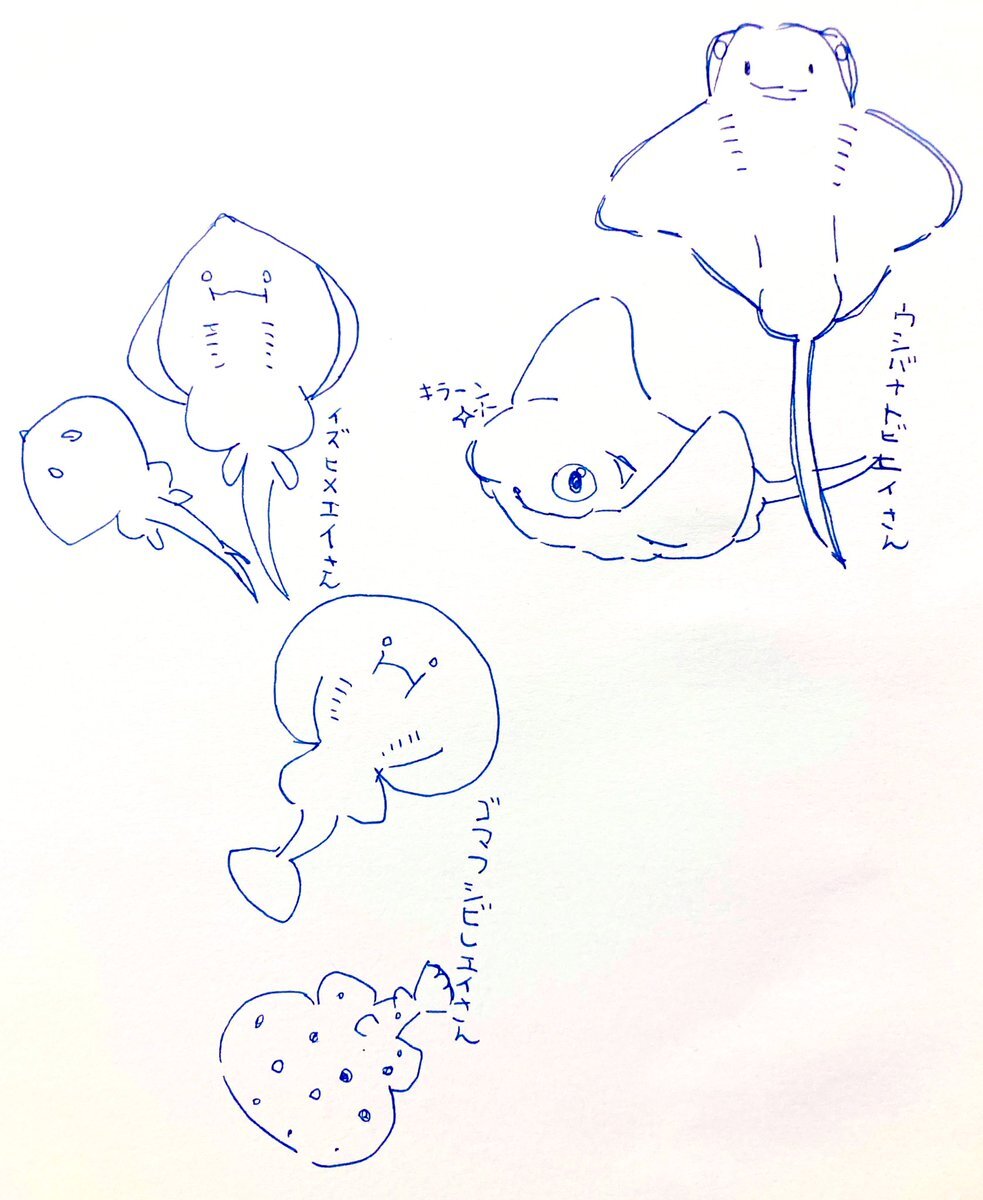 ウシバナトビエイさん
キラーン
イズヒメエイさん
ゴマフシビレエイさん